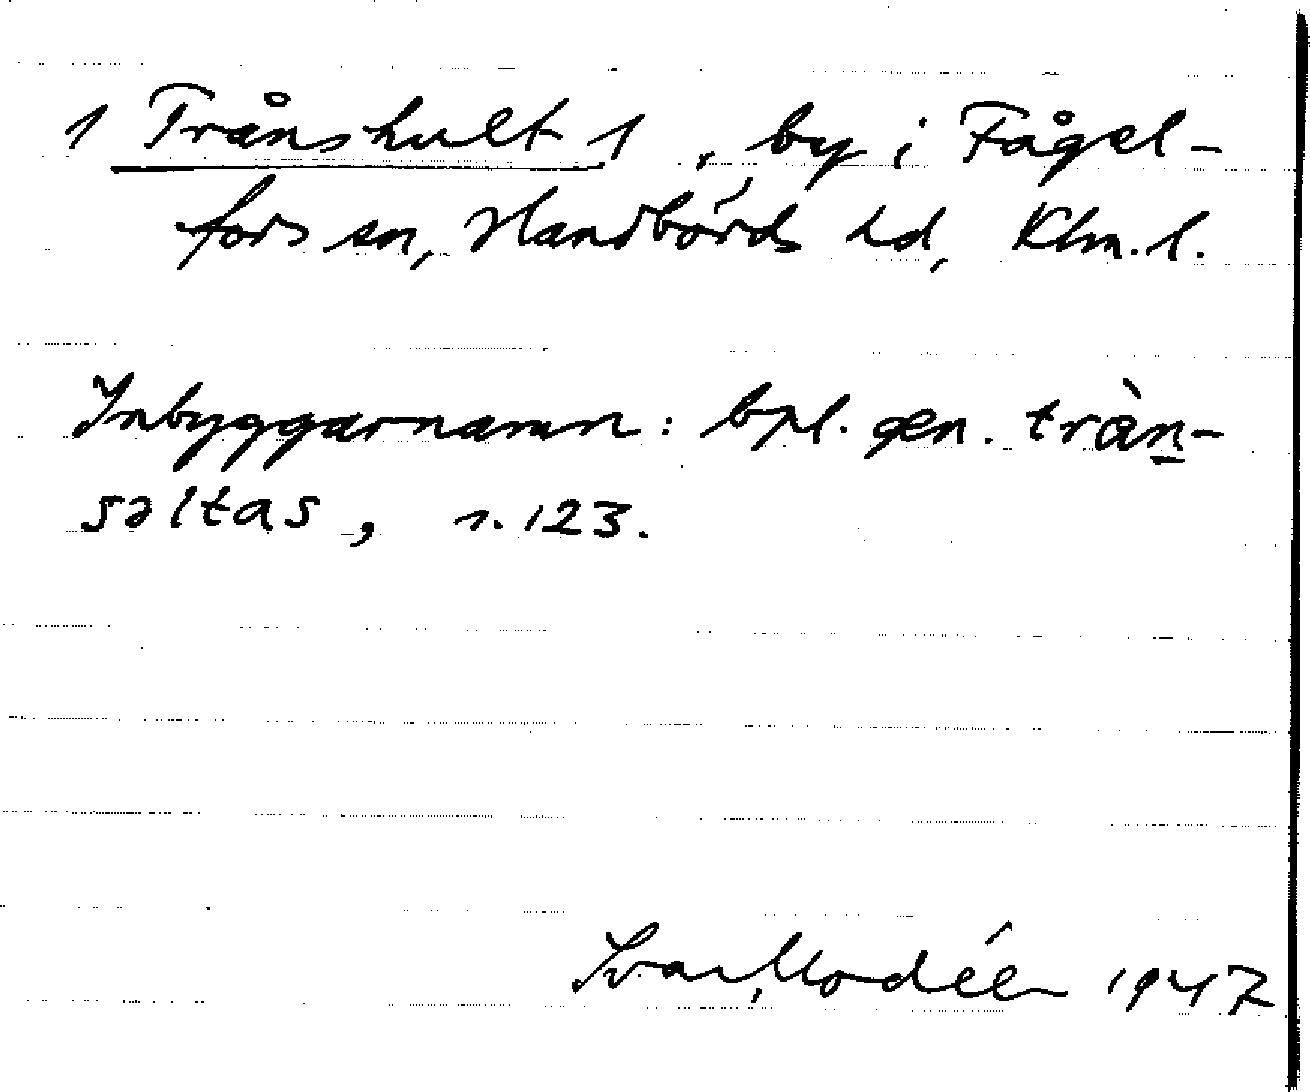 1 Trånshult 1, by i Fågel-
fors sn, Handbörds hd, Klm. l.
Inbyggarnamn: bpl. gen. tràn-
səltas, s. 123.
Ivar Modéer 1947